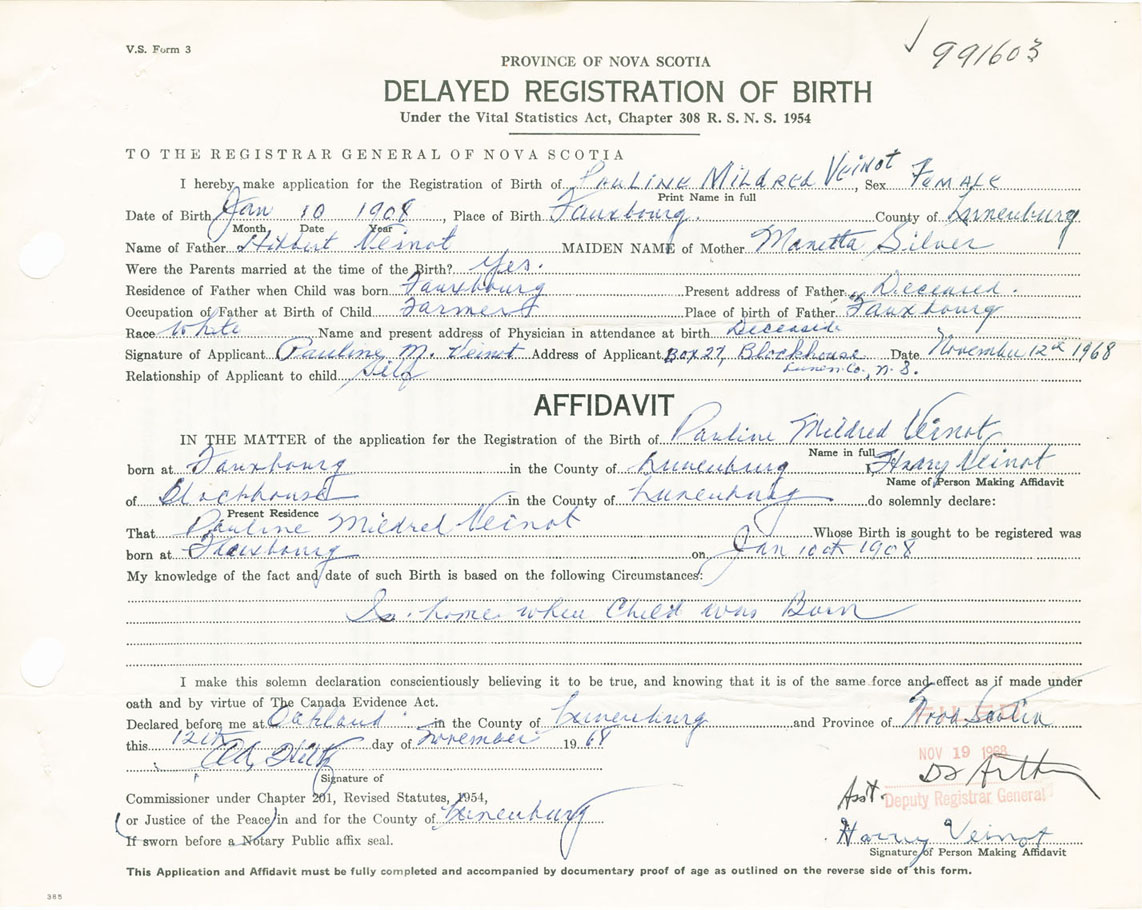 V.S. Form 3
991603
PROVINCE OF NOVA SCOTIA
DELAYED REGISTRATION OF BIRTH
Under the Vital Statistics Act, Chapter 308 R. S. N. S. 1954
TO THE REGISTRAR GENERAL OF NOVA SCOTIA
I hereby make application for the Registration of Birth of PAULINE MILDRED VEINOT, Sex FEMALE
Print Name in full
Date of Birth Jan 10 1908, Place of Birth Fauxbourg. County of Lunenburg
Month Date Year
Name of Father Hibbert Veinot MAIDEN NAME of Mother Manetta Silver
Were the Parents married at the time of the Birth? Yes.
Residence of Father when Child was born Fauxbourg Present address of Father Deceased.
Occupation of Father at Birth of Child Farmer Place of birth of Father Fauxbourg
Race White Name and present address of Physician in attendance at birth Deceaside
Signature of Applicant Pauline M. Veinot Address of Applicant Box 27, Blockhouse Date November 12th 1968
Lunen. Co., N. S.
Relationship of Applicant to child Self
AFFIDAVIT
IN THE MATTER of the application for the Registration of the Birth of Pauline Mildred Veinot
Name in full
born at Fauxbourg in the County of Lunenburg I, Harry Veinot
Name of Person Making Affidavit
of Blockhouse in the County of Lunenburg do solemnly declare:
Present Residence
That Pauline Mildred Veinot Whose Birth is sought to be registered was
born at Fauxbourg on Jan 10th 1908
My knowledge of the fact and date of such Birth is based on the following Circumstances:
home when Child was Born
I make this solemn declaration conscientiously believing it to be true, and knowing that it is of the same force and effect as if made under
oath and by virtue of The Canada Evidence Act.
Declared before me at Oakland in the County of Lunenburg and Province of Nova Scotia
this 12th day of November 1968
NOV 19 1968
Signature of
Asst. Deputy Registrar General
Commissioner under Chapter 201, Revised Statutes, 1954,
(or Justice of the Peace) in and for the County of Lunenburg
If sworn before a Notary Public affix seal.
Harry Veinot
Signature of Person Making Affidavit
This Application and Affidavit must be fully completed and accompanied by documentary proof of age as outlined on the reverse side of this form.
385